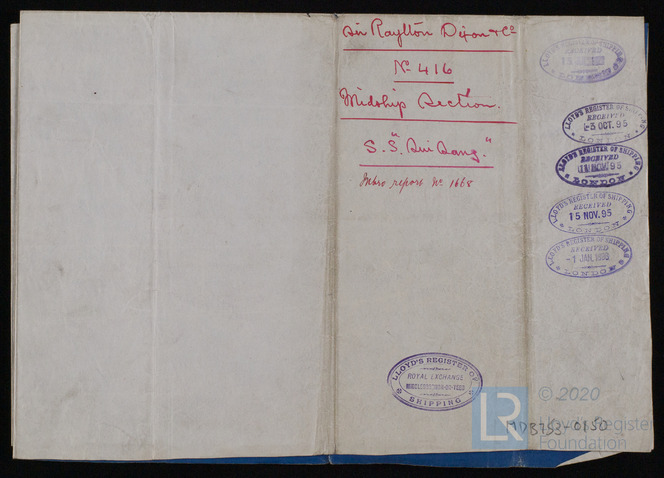 Sir Raylton Dixon & Co
No 416
Midship Section.
S.S. "Sui Sang."
Mbro report No 1668
LLOYD'S REGISTER OF SHIPPING
RECEIVED
LONDON
LLOYD'S REGISTER OF SHIPPING
RECEIVED
-3 OCT. 95
LONDON
LLOYD'S REGISTER OF SHIPPING
RECEIVED
NOV. 95
LONDON
LLOYD'S REGISTER OF SHIPPING
RECEIVED
15 NOV. 95
LONDON
LLOYD'S REGISTER OF SHIPPING
RECEIVED
-1 JAN.
LONDON
LLOYD'S REGISTER OF
ROYAL EXCHANGE
MIDDLESBROUGH-ON-TEES
SHIPPING
LR
© 2020
Lloyd's Register
Foundation
MDB753-0150